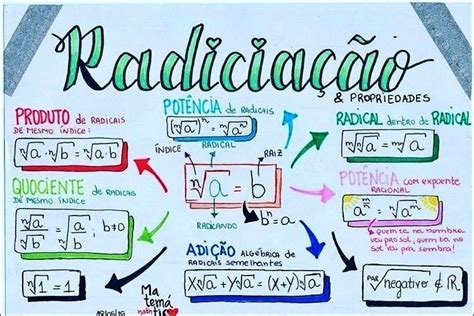 Radiciação
& PROPRIEDADES
PRODUTO de RADICAIS
DE MESMO ÍNDICE:
ⁿ√a · ⁿ√b = ⁿ√a·b
POTÊNCIA de RADICAIS
(ᵐ√a)ⁿ = ᵐ√aⁿ
RADICAL dentro de RADICAL
ÍNDICE
RADICAL
RAIZ
ⁿ√a = b
RADICANDO
bⁿ = a
QUOCIENTE de RADICAIS
DE MESMO ÍNDICE
ⁿ√a / ⁿ√b = ⁿ√(a/b) ; b≠0
POTÊNCIA com EXPOENTE
RACIONAL
quem ta na sombra
vai pro sol, quem ta no
sol vai pra sombra!
ADIÇÃO ALGÉBRICA de
RADICAIS SEMELHANTES
X ⁿ√a + Y ⁿ√a = (X+Y) ⁿ√a
ⁿ√1 = 1
Ma
temá
ti
par√negativo ∉ ℝ